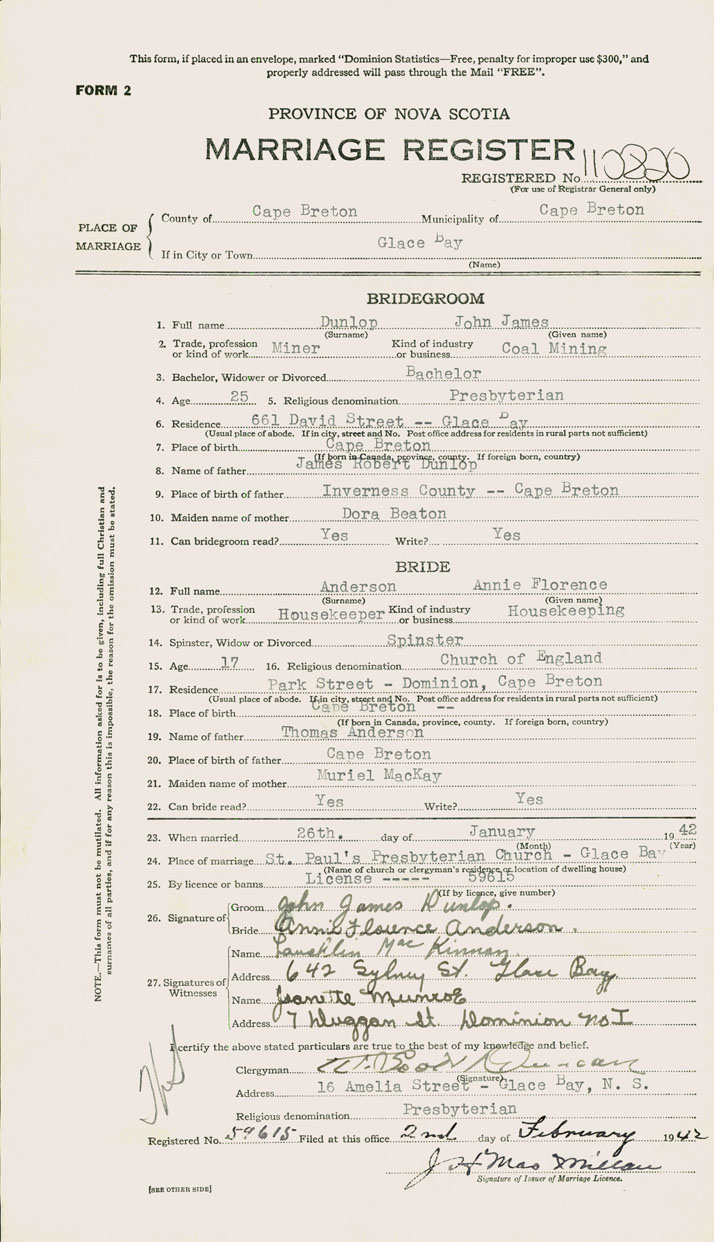 This form, if placed in an envelope, marked "Dominion Statistics—Free, penalty for improper use $300," and
properly addressed will pass through the Mail "FREE".
FORM 2
PROVINCE OF NOVA SCOTIA
MARRIAGE REGISTER
REGISTERED No. 110820
(For use of Registrar General only)
PLACE OF MARRIAGE
County of Cape Breton Municipality of Cape Breton
If in City or Town Glace Bay
(Name)
BRIDEGROOM
1. Full name Dunlop John James
(Surname) (Given name)
2. Trade, profession or kind of work Miner Kind of industry or business Coal Mining
3. Bachelor, Widower or Divorced Bachelor
4. Age 25 5. Religious denomination Presbyterian
6. Residence 661 David Street -- Glace Bay
(Usual place of abode. If in city, street and No. Post office address for residents in rural parts not sufficient)
7. Place of birth Cape Breton
(If born in Canada, province, county. If foreign born, country)
8. Name of father James Robert Dunlop
9. Place of birth of father Inverness County -- Cape Breton
10. Maiden name of mother Dora Beaton
11. Can bridegroom read? Yes Write? Yes
BRIDE
12. Full name Anderson Annie Florence
(Surname) (Given name)
13. Trade, profession or kind of work Housekeeper Kind of industry or business Housekeeping
14. Spinster, Widow or Divorced Spinster
15. Age 17 16. Religious denomination Church of England
17. Residence Park Street - Dominion, Cape Breton
(Usual place of abode. If in city, street and No. Post office address for residents in rural parts not sufficient)
18. Place of birth Cape Breton --
(If born in Canada, province, county. If foreign born, country)
19. Name of father Thomas Anderson
20. Place of birth of father Cape Breton
21. Maiden name of mother Muriel MacKay
22. Can bride read? Yes Write? Yes
23. When married 26th. day of January 1942
(Month) (Year)
24. Place of marriage St. Paul's Presbyterian Church - Glace Bay
(Name of church or clergyman's residence or location of dwelling house)
25. By licence or banns License ----- 59615
(If by licence, give number)
26. Signature of
Groom John James Dunlop.
Bride Annie Florence Anderson.
27. Signatures of Witnesses
Name Lauchlin MacKinnon
Address 642 Sydney St. Glace Bay
Name Jeanette Munroe
Address 7 Duggan St. Dominion No I
I certify the above stated particulars are true to the best of my knowledge and belief.
Clergyman Duncan
(Signature)
Address 16 Amelia Street - Glace Bay, N. S.
Religious denomination Presbyterian
Registered No. 59615 Filed at this office 2nd day of February 1942
J H MacMillan
Signature of Issuer of Marriage Licence.
[SEE OTHER SIDE]
NOTE.—This form must not be mutilated. All information asked for is to be given, including full Christian and
surnames of all parties, and if for any reason this is impossible, the reason for the omission must be stated.